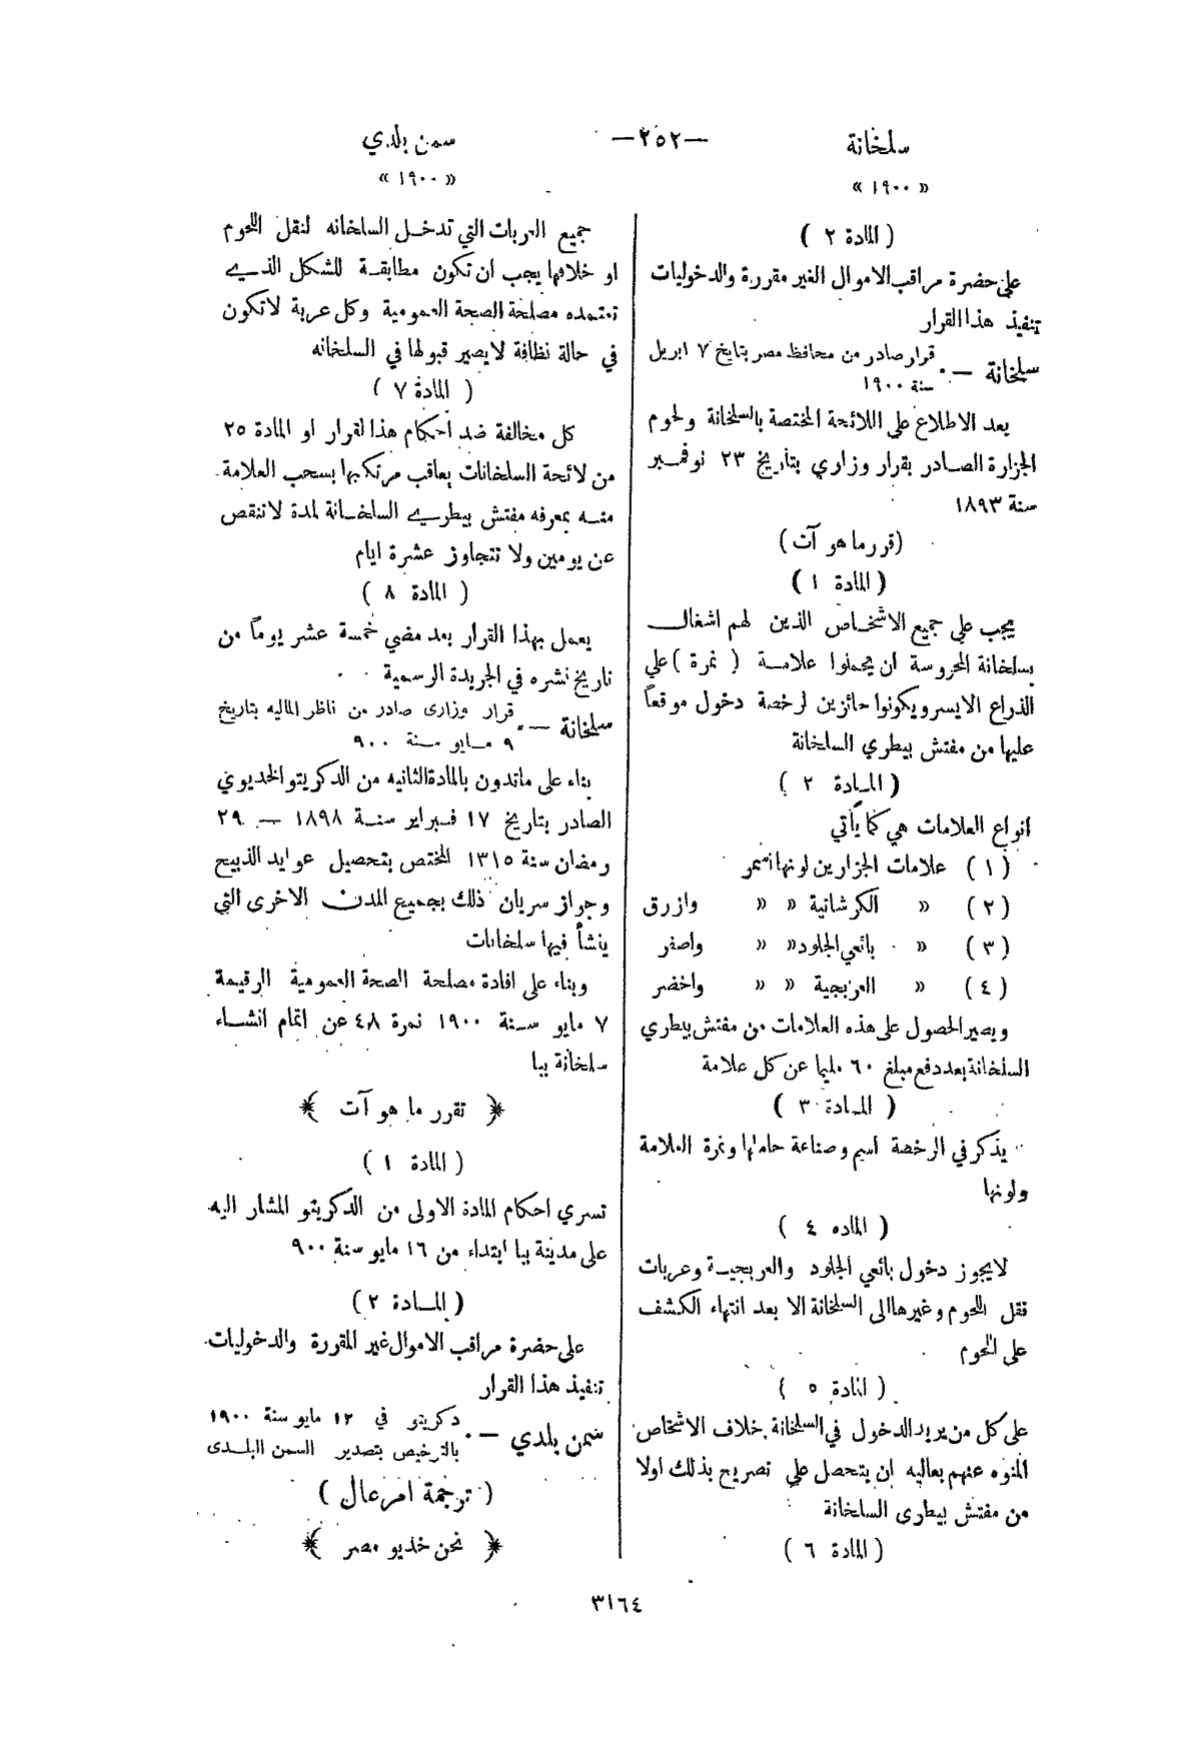 سلخانة
—٢٥٢—
سمن بلدي
« ١٩٠٠ »
« ١٩٠٠ »
( المادة ٢ )
على حضرة مراقب الاموال الغير مقررة والدخوليات
تنفيذ هذا القرار
سلخانة — قرار صادر من محافظ مصر بتايخ ٧ ابريل
سنة ١٩٠٠
بعد الاطلاع على اللائحة المختصة بالسلخانة ولحوم
الجزارة الصادر بقرار وزاري بتاريخ ٢٣ نوفمبر
سنة ١٨٩٣
(قررما هو آت)
( المادة ١ )
يجب على جميع الاشخاص الذين لهم اشغال
بسلخانة المحروسة ان يحملوا علامة ( نمرة ) علي
الذراع الايسر ويكونوا حائزين لرخصة دخول موقعاً
عليها من مفتش بيطري السلخانة
( المادة ٢ )
انواع العلامات هي كما يأتي
( ١ ) علامات الجزارين لونها اسمر
( ٢ ) « الكرشانية « « وازرق
( ٣ ) « بائعي الجلود « « واصفر
( ٤ ) « العربجية « « واخضر
ويصير الحصول على هذه العلامات من مفتش بيطري
السلخانة بعد دفع مبلغ ٦٠ مليما عن كل علامة
( المادة ٣ )
يذكر في الرخصة اسم وصناعة حاملها ونمرة العلامة
ولونها
( الماده ٤ )
لايجوز دخول بائعي الجلود والعربجية وعربات
نقل اللحوم وغيرها الى السلخانة الا بعد انتهاء الكشف
على اللحوم
( المادة ٥ )
على كل من يريد الدخول في السلخانة خلاف الاشخاص
المنوه عنهم بعاليه ان يتحصل علي تصريح بذلك اولا
من مفتش بيطرى السلخانة
( المادة ٦ )
جميع العربات التي تدخل السلخانه لنقل اللحوم
او خلافها يجب ان تكون مطابقة للشكل الذي
تعتمده مصلحة الصحة العمومية وكل عربة لاتكون
في حالة نظافة لايصير قبولها في السلخانه
( المادة ٧ )
كل مخالفة ضد احكام هذا القرار او المادة ٢٥
من لائحة السلخانات يعاقب مرتكبها بسحب العلامة
منه بمعرفه مفتش بيطري السلخانة لمدة لاتنقص
عن يومين ولا تتجاوز عشرة ايام
( المادة ٨ )
يعمل بهذا القرار بعد مضي خمسة عشر يوماً من
تاريخ نشره في الجريدة الرسمية
سلخانة — قرار وزارى صادر من ناظر الماليه بتاريخ
٩ مايو سنة ٩٠٠
بناء على ماتدون بالمادة الثانيه من الدكريتو الخديوي
الصادر بتاريخ ١٧ فبراير سنة ١٨٩٨ — ٢٩
ومضان سنة ١٣١٥ المختص بتحصيل عوايد الذبيح
وجواز سريان ذلك بجميع المدن الاخرى التي
ينشأ فيها سلخانات
وبناء على افادة مصلحة الصحة العمومية الرقيمة
٧ مايو سنة ١٩٠٠ نمرة ٤٨ عن اتمام انشاء
سلخانة ببا
﴿ تقرر ما هو آت ﴾
( المادة ١ )
تسري احكام المادة الاولى من الدكريتو المشار اليه
على مدينة ببا ابتداء من ١٦ مايو سنة ٩٠٠
( المادة ٢ )
على حضرة مراقب الاموال غير المقررة والدخوليات
تنفيذ هذا القرار
سمن بلدي — دكريتو في ١٢ مايو سنة ١٩٠٠
بالترخيص بتصدير السمن البلدى
( ترجمة امر عال )
﴿ نحن خديو مصر ﴾
٣١٦٤